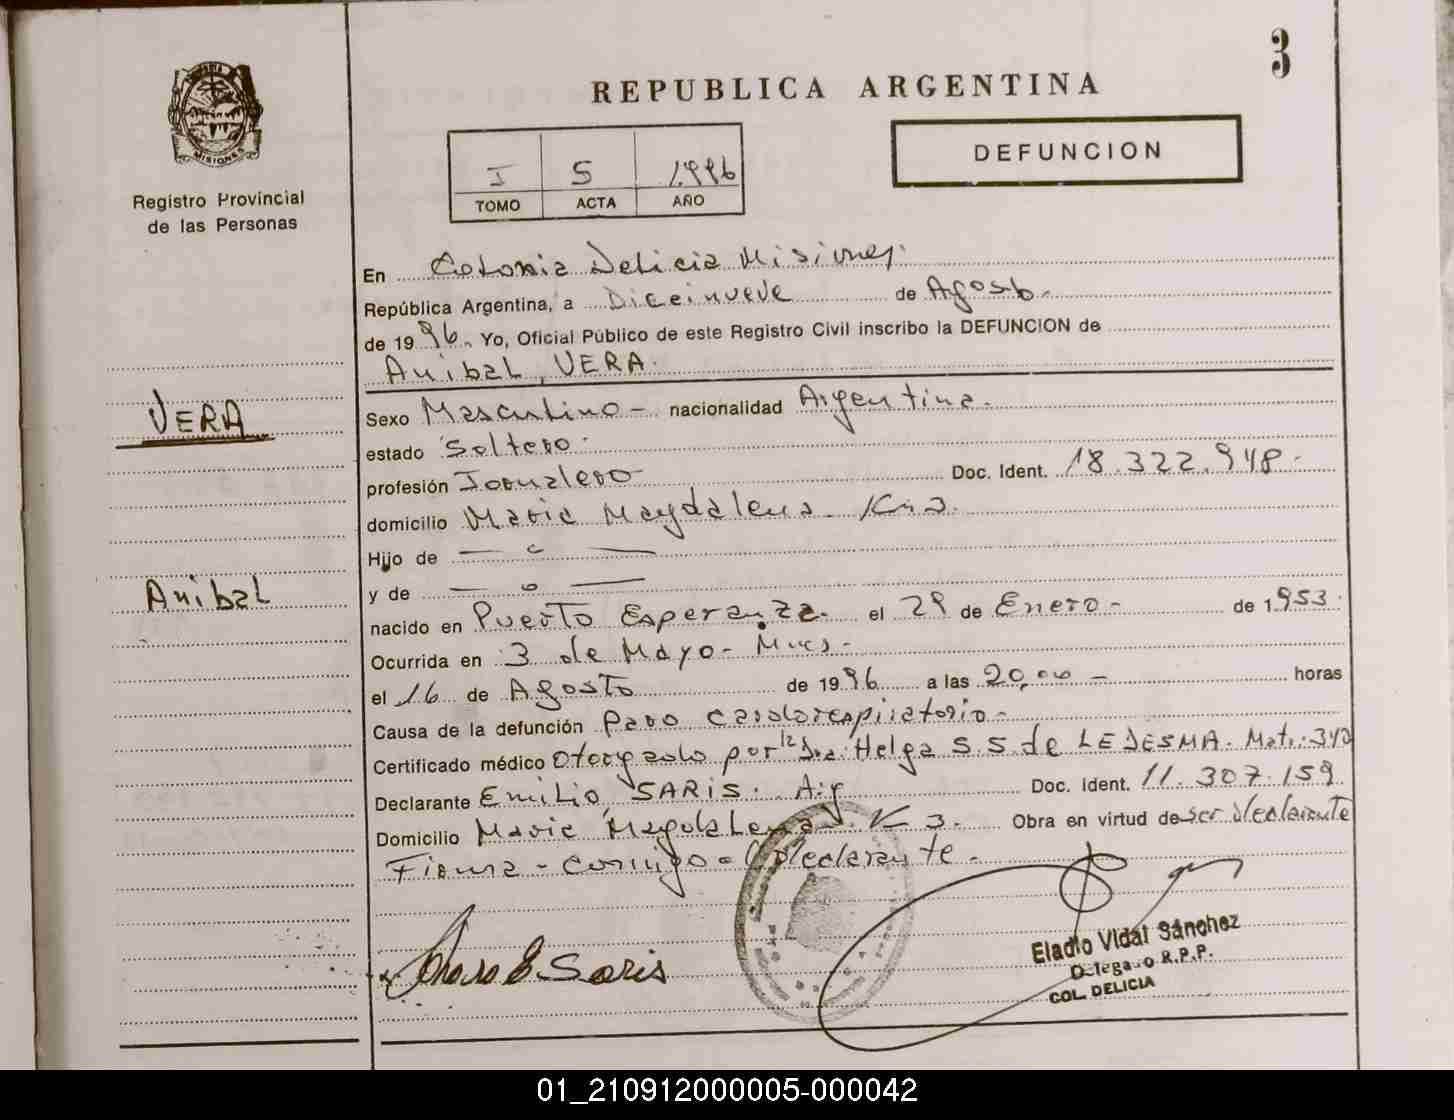 3
MISIONES
Registro Provincial
de las Personas
REPUBLICA ARGENTINA
DEFUNCION
I 5 1.996
TOMO ACTA AÑO
En Colonia Delicia Misiones.
República Argentina, a Dieeinueve de Agosto.
de 1996. Yo, Oficial Público de este Registro Civil inscribo la DEFUNCION de
Anibal, VERA.
VERA
Anibal
Sexo Masculino - nacionalidad Argentina.
estado Soltero.
profesión Jornalero Doc. Ident. 18.322.948-
domicilio Maria Magdalena.
Hijo de
y de
nacido en Puerto Esperanza. el 29 de Enero - de 1.953.
Ocurrida en 3 de Mayo -
el 16 de Agosto de 1996 a las 20,00 - horas
Causa de la defunción Paro Cardorespiratorio -
Certificado médico Otorgado por la Dra. Helga S. S. de LEDESMA. Mat.: 340
Declarante Emilio, SARIS. Arg Doc. Ident. 11.307.159
Domicilio Maria Magdalena. K 3. Obra en virtud de ser declarante
Firma - conmigo = Declarante.
E. Saris
Eladio Vidal Sánchez
Delegado R.P.P.
COL. DELICIA
01_210912000005-000042